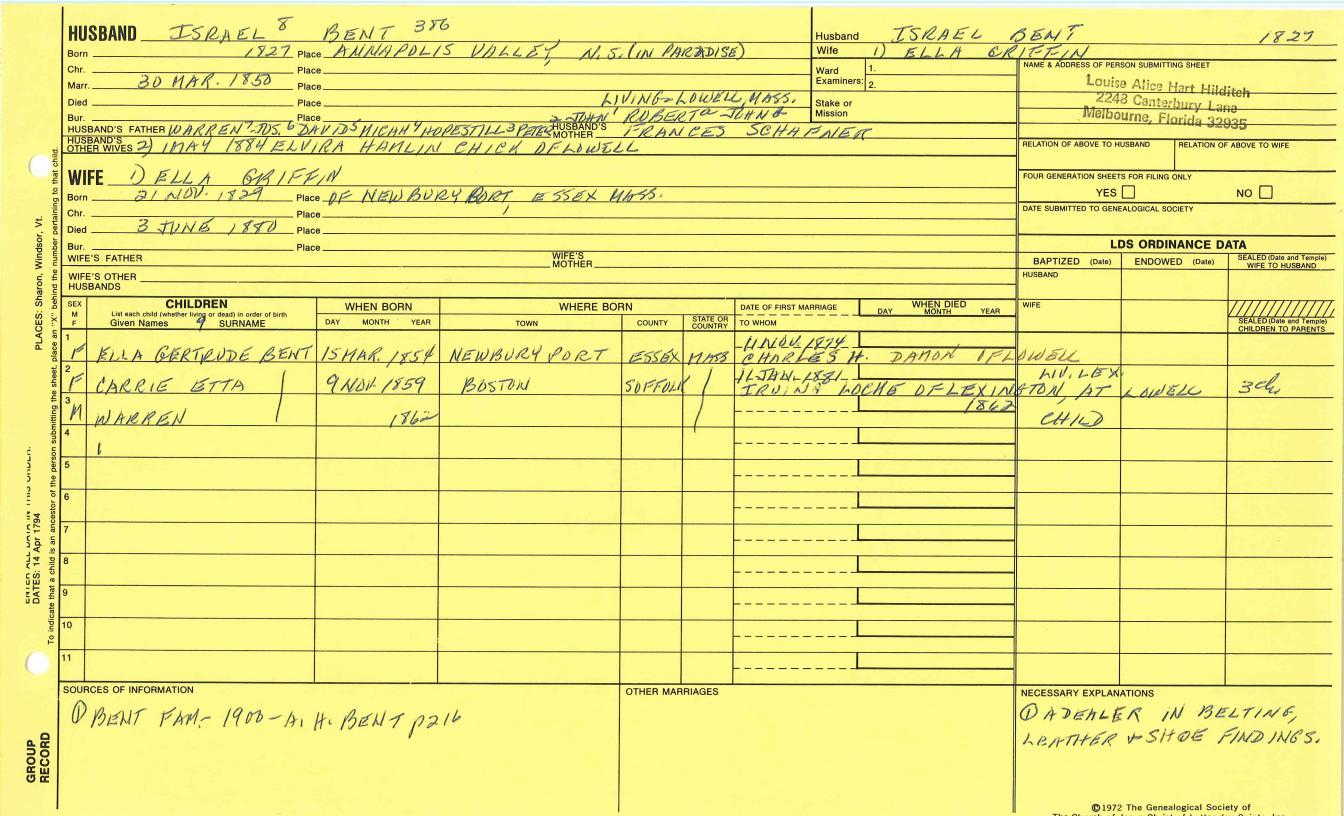 HUSBAND ISRAEL 8 BENT 386
Born 1827 Place ANNAPOLIS VALLEY, N.S. (IN PARADISE)
Chr. Place
Marr. 30 MAR. 1850 Place
Died Place LIVING-LOWELL, MASS.
Bur. Place
HUSBAND'S FATHER WARREN7 JOS.6 DAVID5 MICAH4 HOPESTILL3 PETER2 JOHN1 ROBERTa JOHNb HUSBAND'S MOTHER FRANCES SCHAFNER
HUSBAND'S OTHER WIVES 2) 1MAY 1884 ELVIRA HAMLIN CHICK OF LOWELL
Husband ISRAEL BENT 1827
Wife 1) ELLA GRIFFIN
Ward Examiners: 1. 2.
Stake or Mission
NAME & ADDRESS OF PERSON SUBMITTING SHEET
Louise Alice Hart Hilditch
2248 Canterbury Lane
Melbourne, Florida 32935
RELATION OF ABOVE TO HUSBAND RELATION OF ABOVE TO WIFE
FOUR GENERATION SHEETS FOR FILING ONLY
YES NO
DATE SUBMITTED TO GENEALOGICAL SOCIETY
WIFE 1) ELLA GRIFFIN
Born 21 NOV. 1829 Place OF NEWBURY PORT, ESSEX MASS.
Chr. Place
Died 3 JUNE 1880 Place
Bur. Place
WIFE'S FATHER WIFE'S MOTHER
WIFE'S OTHER HUSBANDS
LDS ORDINANCE DATA
BAPTIZED (Date) ENDOWED (Date) SEALED (Date and Temple) WIFE TO HUSBAND
HUSBAND
WIFE
SEALED (Date and Temple) CHILDREN TO PARENTS
SEX M F
CHILDREN
List each child (whether living or dead) in order of birth
Given Names 9 SURNAME
WHEN BORN DAY MONTH YEAR
WHERE BORN TOWN COUNTY STATE OR COUNTRY
DATE OF FIRST MARRIAGE TO WHOM
WHEN DIED DAY MONTH YEAR
1 F ELLA GERTRUDE BENT 15 MAR. 1854 NEWBURY PORT ESSEX MASS 11 NOV. 1874 CHARLES H. DAMON OF LOWELL
2 F CARRIE ETTA 9 NOV. 1859 BOSTON SUFFOLK 11 JAN. 1881 IRVING LOCHE OF LEXINGTON, AT LOWELL LIV. LEX. 3 ch.
3 M WARREN 1862 1862 CHILD
4
5
6
7
8
9
10
11
SOURCES OF INFORMATION
① BENT FAM.- 1900-A. H. BENT p216
OTHER MARRIAGES
NECESSARY EXPLANATIONS
① A DEALER IN BELTING,
LEATHER & SHOE FINDINGS.
©1972 The Genealogical Society of
PLACES: Sharon, Windsor, Vt.
To indicate that a child is an ancestor of the person submitting the sheet, place an "X" behind the number pertaining to that child.
ENTER ALL DATA IN THIS ORDER:
DATES: 14 Apr 1794
GROUP
RECORD